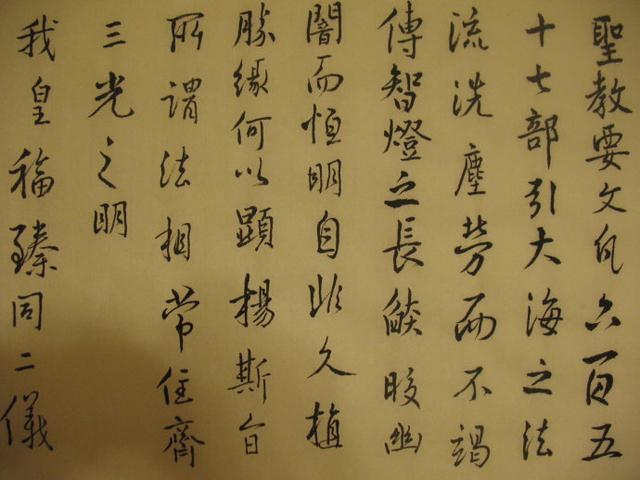 聖教要文凡六百五
十七部引大海之法
流洗塵勞而不竭
傳智燈之長燄皎幽
闇而恒明自非久植
勝緣何以顯揚斯旨
所謂法相常住齊
三光之明
我皇福臻同二儀